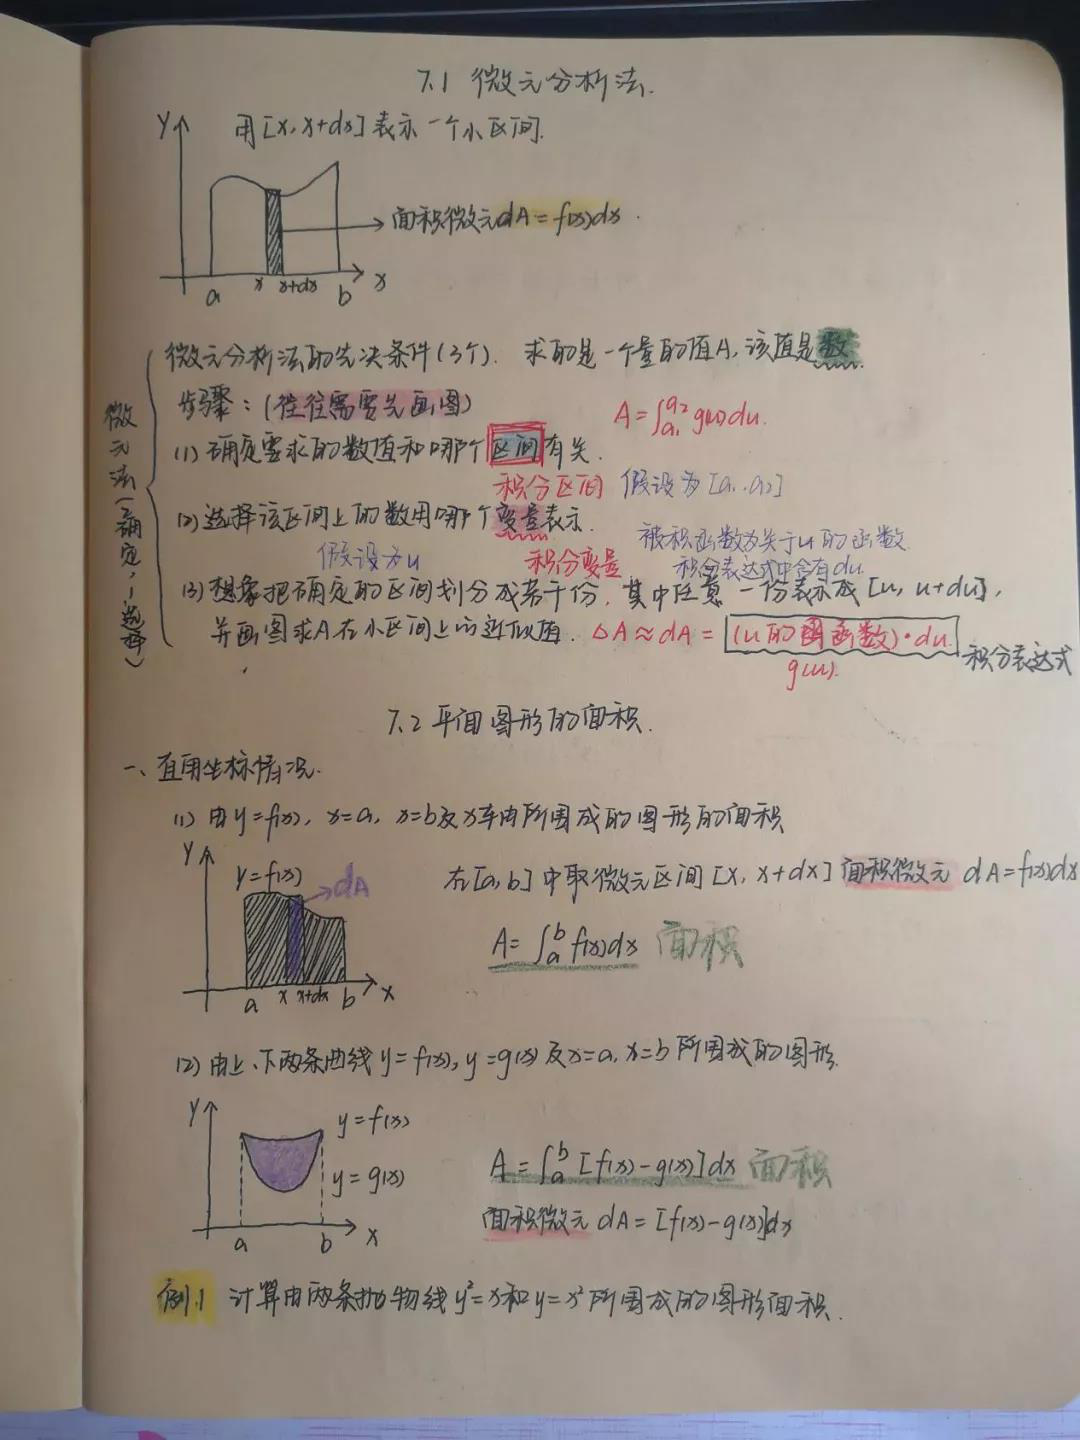 7.1 微元分析法.
用[x, x+dx]表示一个小区间.
Y
面积微元dA=f(x)dx.
a x x+dx b x
微元法(确定,选择)
微元分析法的先决条件(3个). 求的是一个量的值A,该值是数
步骤:(往往需要先画图)
A=∫_{a₁}^{a₂} g(u)du.
(1) 确定要求的数值和哪个区间有关.
积分区间 假设为[a₁, a₂]
(2) 选择该区间上的数用哪个变量表示.
被积函数为关于u的函数.
假设为u 积分变量 积分表达式中含有du
(3) 想象把确定的区间划分成若干份,其中任意一份表示成[u, u+du],
并画图求A在小区间上的近似值. ΔA≈dA=(u的函数)·du 积分表达式
g(u).
7.2 平面图形的面积.
一、直角坐标情况.
(1) 由y=f(x), x=a, x=b及x轴所围成的图形的面积
Y
y=f(x)
dA
在[a,b]中取微元区间[x, x+dx] 面积微元 dA=f(x)dx
A=∫_a^b f(x)dx 面积
a x x+dx b x
(2) 由上、下两条曲线y=f(x), y=g(x)及x=a, x=b所围成的图形.
Y
y=f(x)
y=g(x)
a b x
A=∫_a^b [f(x)-g(x)]dx 面积
面积微元 dA=[f(x)-g(x)]dx
例1 计算由两条抛物线y²=x和y=x²所围成的图形面积.